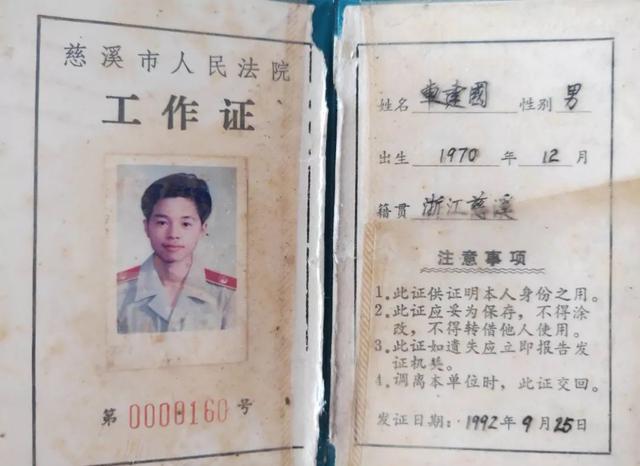 慈溪市人民法院
工作证
第 0000160 号
姓名 車建國 性别 男
出生 1970 年 12 月
籍贯 浙江慈溪
注意事项
1.此证供证明本人身份之用。
2.此证应妥为保存，不得涂
改，不得转借他人使用。
3.此证如遗失应立即报告发
证机关。
4.调离本单位时，此证交回。
发证日期：1992年9月25日